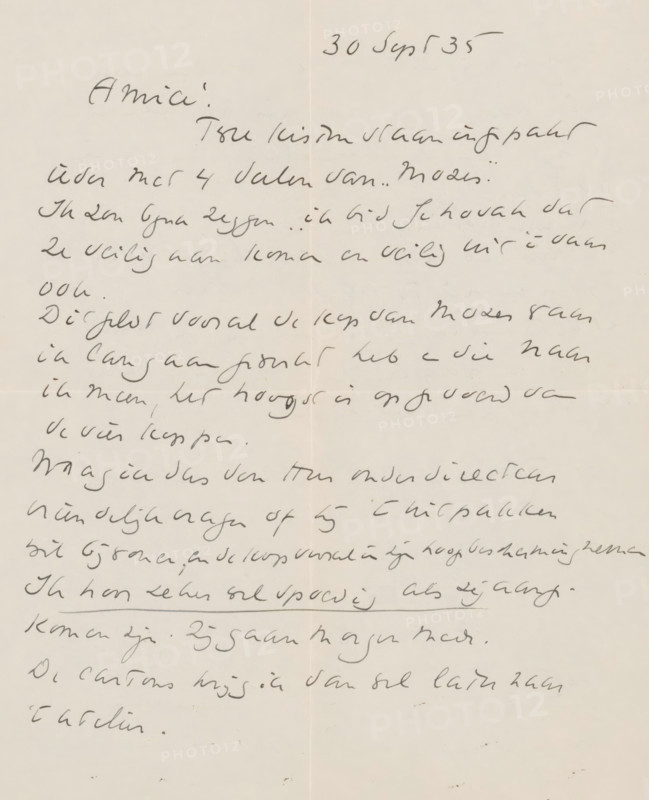 30 Sept 35
Amice!
Twee kisten staan ingepakt
ieder met 4 deelen van "Mozes".
Ik zou bijna zeggen "ik bid Jehovah dat
ze veilig aan komen en veilig uit 't vaar
ook.
Dit geldt vooral de kop van Mozes waar
ik lang aan gewerkt heb en die naar
ik meen, het hoogst is opgevoerd van
de vier koppen.
Mag ik dus den Heer onderdirecteur
vriendelijk vragen of hij 't uitpakken
wil bijwonen, en de kop vooral in zijn hooge bescherming nemen
Ik hoor zeker wel spoedig als zij aange-
komen zijn. Zij gaan morgen mede.
De cartons krijg ik dan wel later naar
't atelier.
PHOTO12